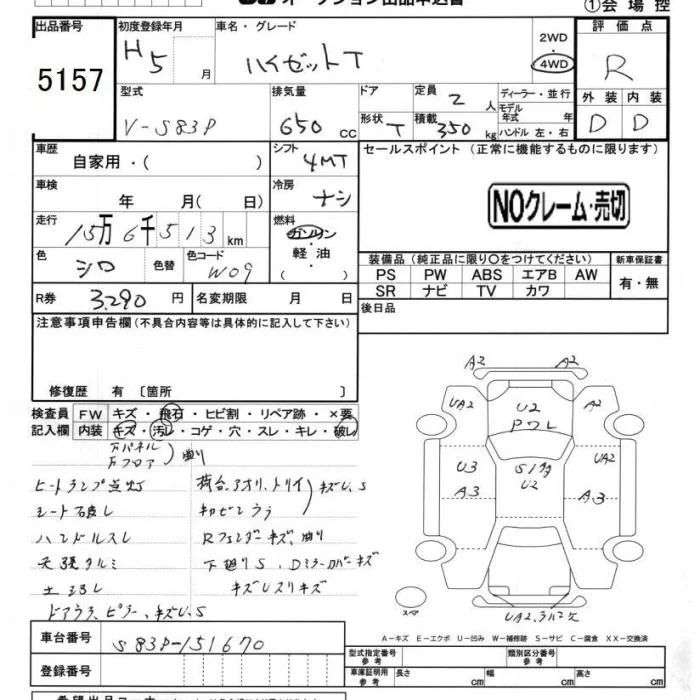 オークション出品申込書
①会場控
出品番号
5157
初度登録年月
H5 月
車名・グレード
ハイゼットT
2WD
・
4WD
評価点
R
外装 内装
D D
型式
V-S83P
排気量
650 cc
ドア
形状 T
定員 2 人
積載 350 kg
ディーラー・並行
モデル
年式 年
ハンドル 左・右
車歴
自家用・( )
シフト
4MT
セールスポイント (正常に機能するものに限ります)
NOクレーム・売切
車検
年 月( 日)
冷房
ナシ
走行
15万6千513km
燃料
ガソリン
・
軽油
( )
色
シロ
色替
色コード
W09
装備品 (純正品に限り○をつけてください)
PS PW ABS エアB AW
SR ナビ TV カワ
新車保証書
有・無
R券 3,290円
名変期限 月 日
後日品
注意事項申告欄(不具合内容等は具体的に記入して下さい)
修復歴 有〔箇所 〕
検査員 FW キズ・飛石・ヒビ割・リペア跡・×要
記入欄 内装 キズ・汚レ・コゲ・穴・スレ・キレ・破レ
Fパネル
Fフロア 曲り
ヒートランプ点灯
シート破レ
ハンドルスレ
天張タルミ
荷台、アオリ、トリイ キズU、S
Rフェンダーキズ、曲り
下廻りS、Dミラーカバーキズ
ドアウラ、ピラー、キズU、S
A2 A2
UA2 U2 A2
Pワレ
U3 S U2 UA2
A3 A3
スペア
UA2
A-キズ E-エクボ U-凹み W-補修跡 S-サビ C-腐食 XX-交換済
車台番号 S83P-151670
登録番号
型式指定番号
参考
類別区分番号
参考
車庫証明用
参考
長さ cm 幅 cm 高さ cm